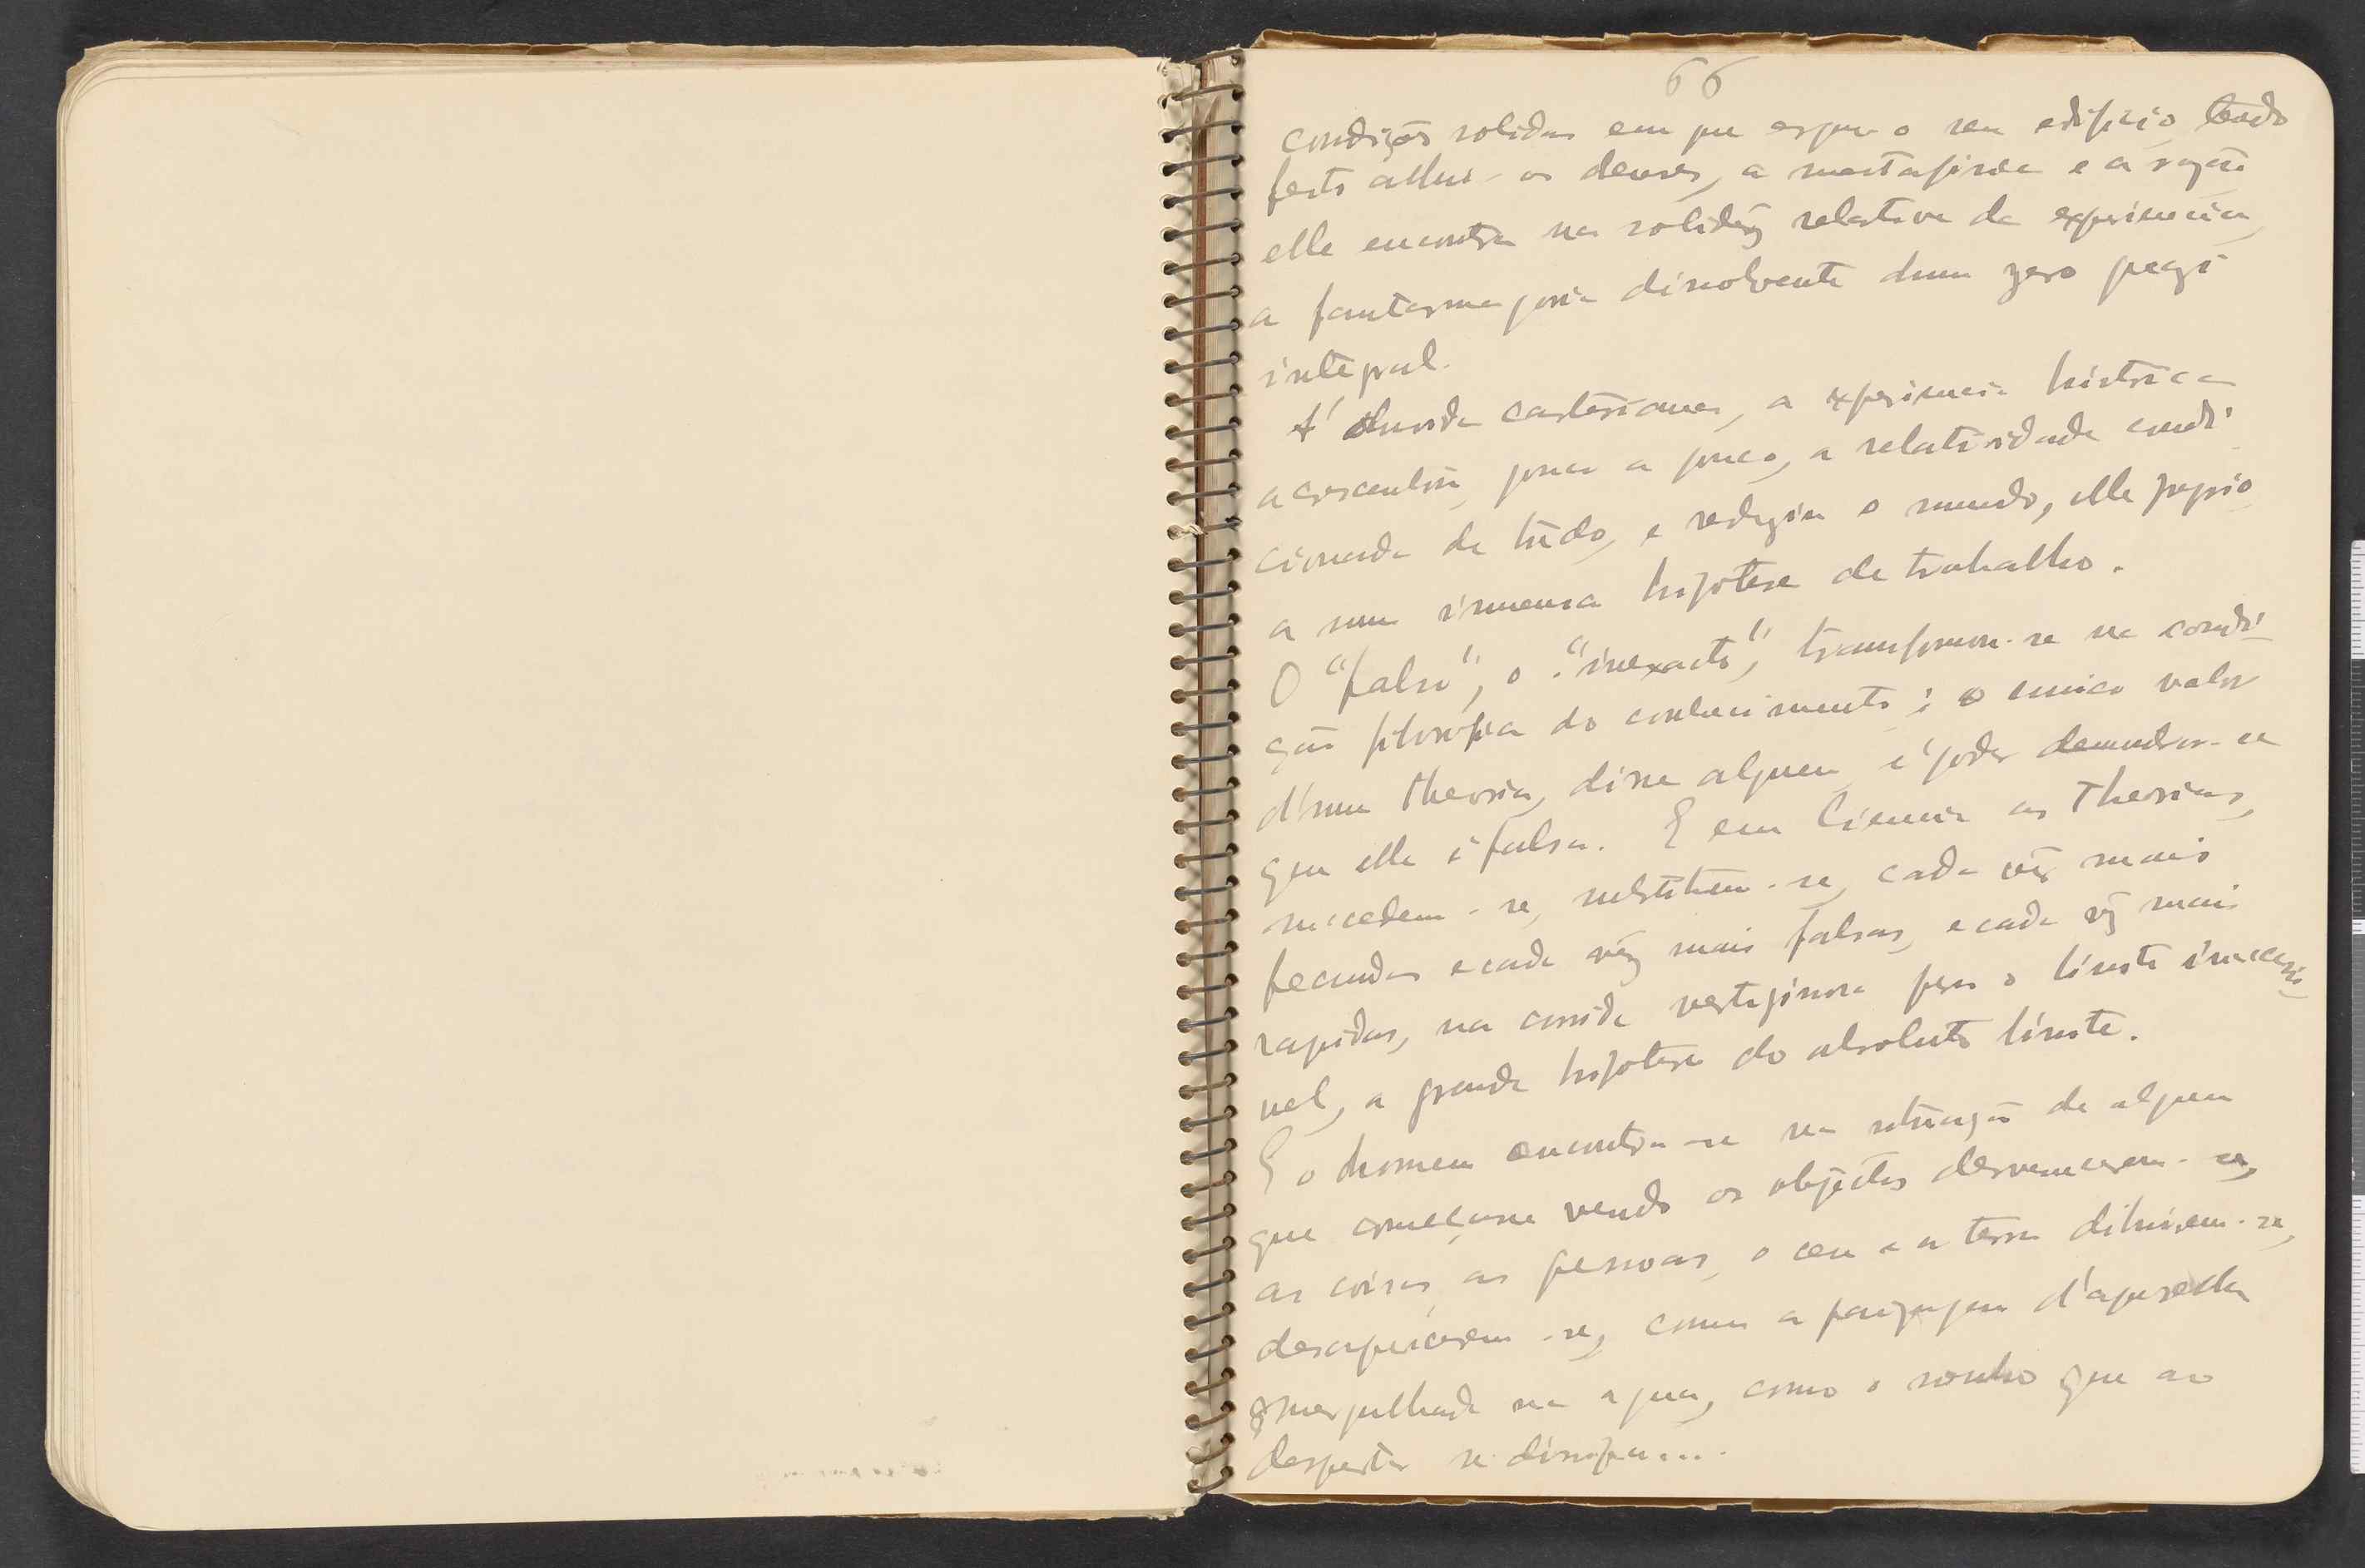 66
condições solidas em que ergue o seu edificio, tendo
feito alluir os deuses, a metafisica e a razão
elle encontra na solidez relativa da experiencia,
a fantasmagoria dissolvente dum zero quazi
integral.
A' duvida cartesiana, a experiencia historica
acrescentou, pouco a pouco, a relatividade condi-
cionada de tudo, e reduziu o mundo, elle proprio
a uma immensa hipotese de trabalho.
O "falso", o "inexacto", transformou-se na condi-
ção filosofica do conhecimento; o unico valor
d'uma theoria, disse alguem, é poder demonstrar-se
que ella é falsa. E em Ciencia as Theorias,
succedem-se, substituem-se, cada vez mais
fecundas e cada vez mais falsas, e cada vez mais
rapidas, na corrida vertiginosa para o limite inaccessi-
vel, a grande hipotese do absoluto limite.
E o homem encontra-se na situação de alguem
que começasse vendo os objectos desvanecerem-se,
as coisas, as pessoas, o ceu e a terra diluirem-se,
desapareceram-se, como a paizagem d'aguarella
mergulhada na agua, como o sonho que ao
despertar se dissipa....